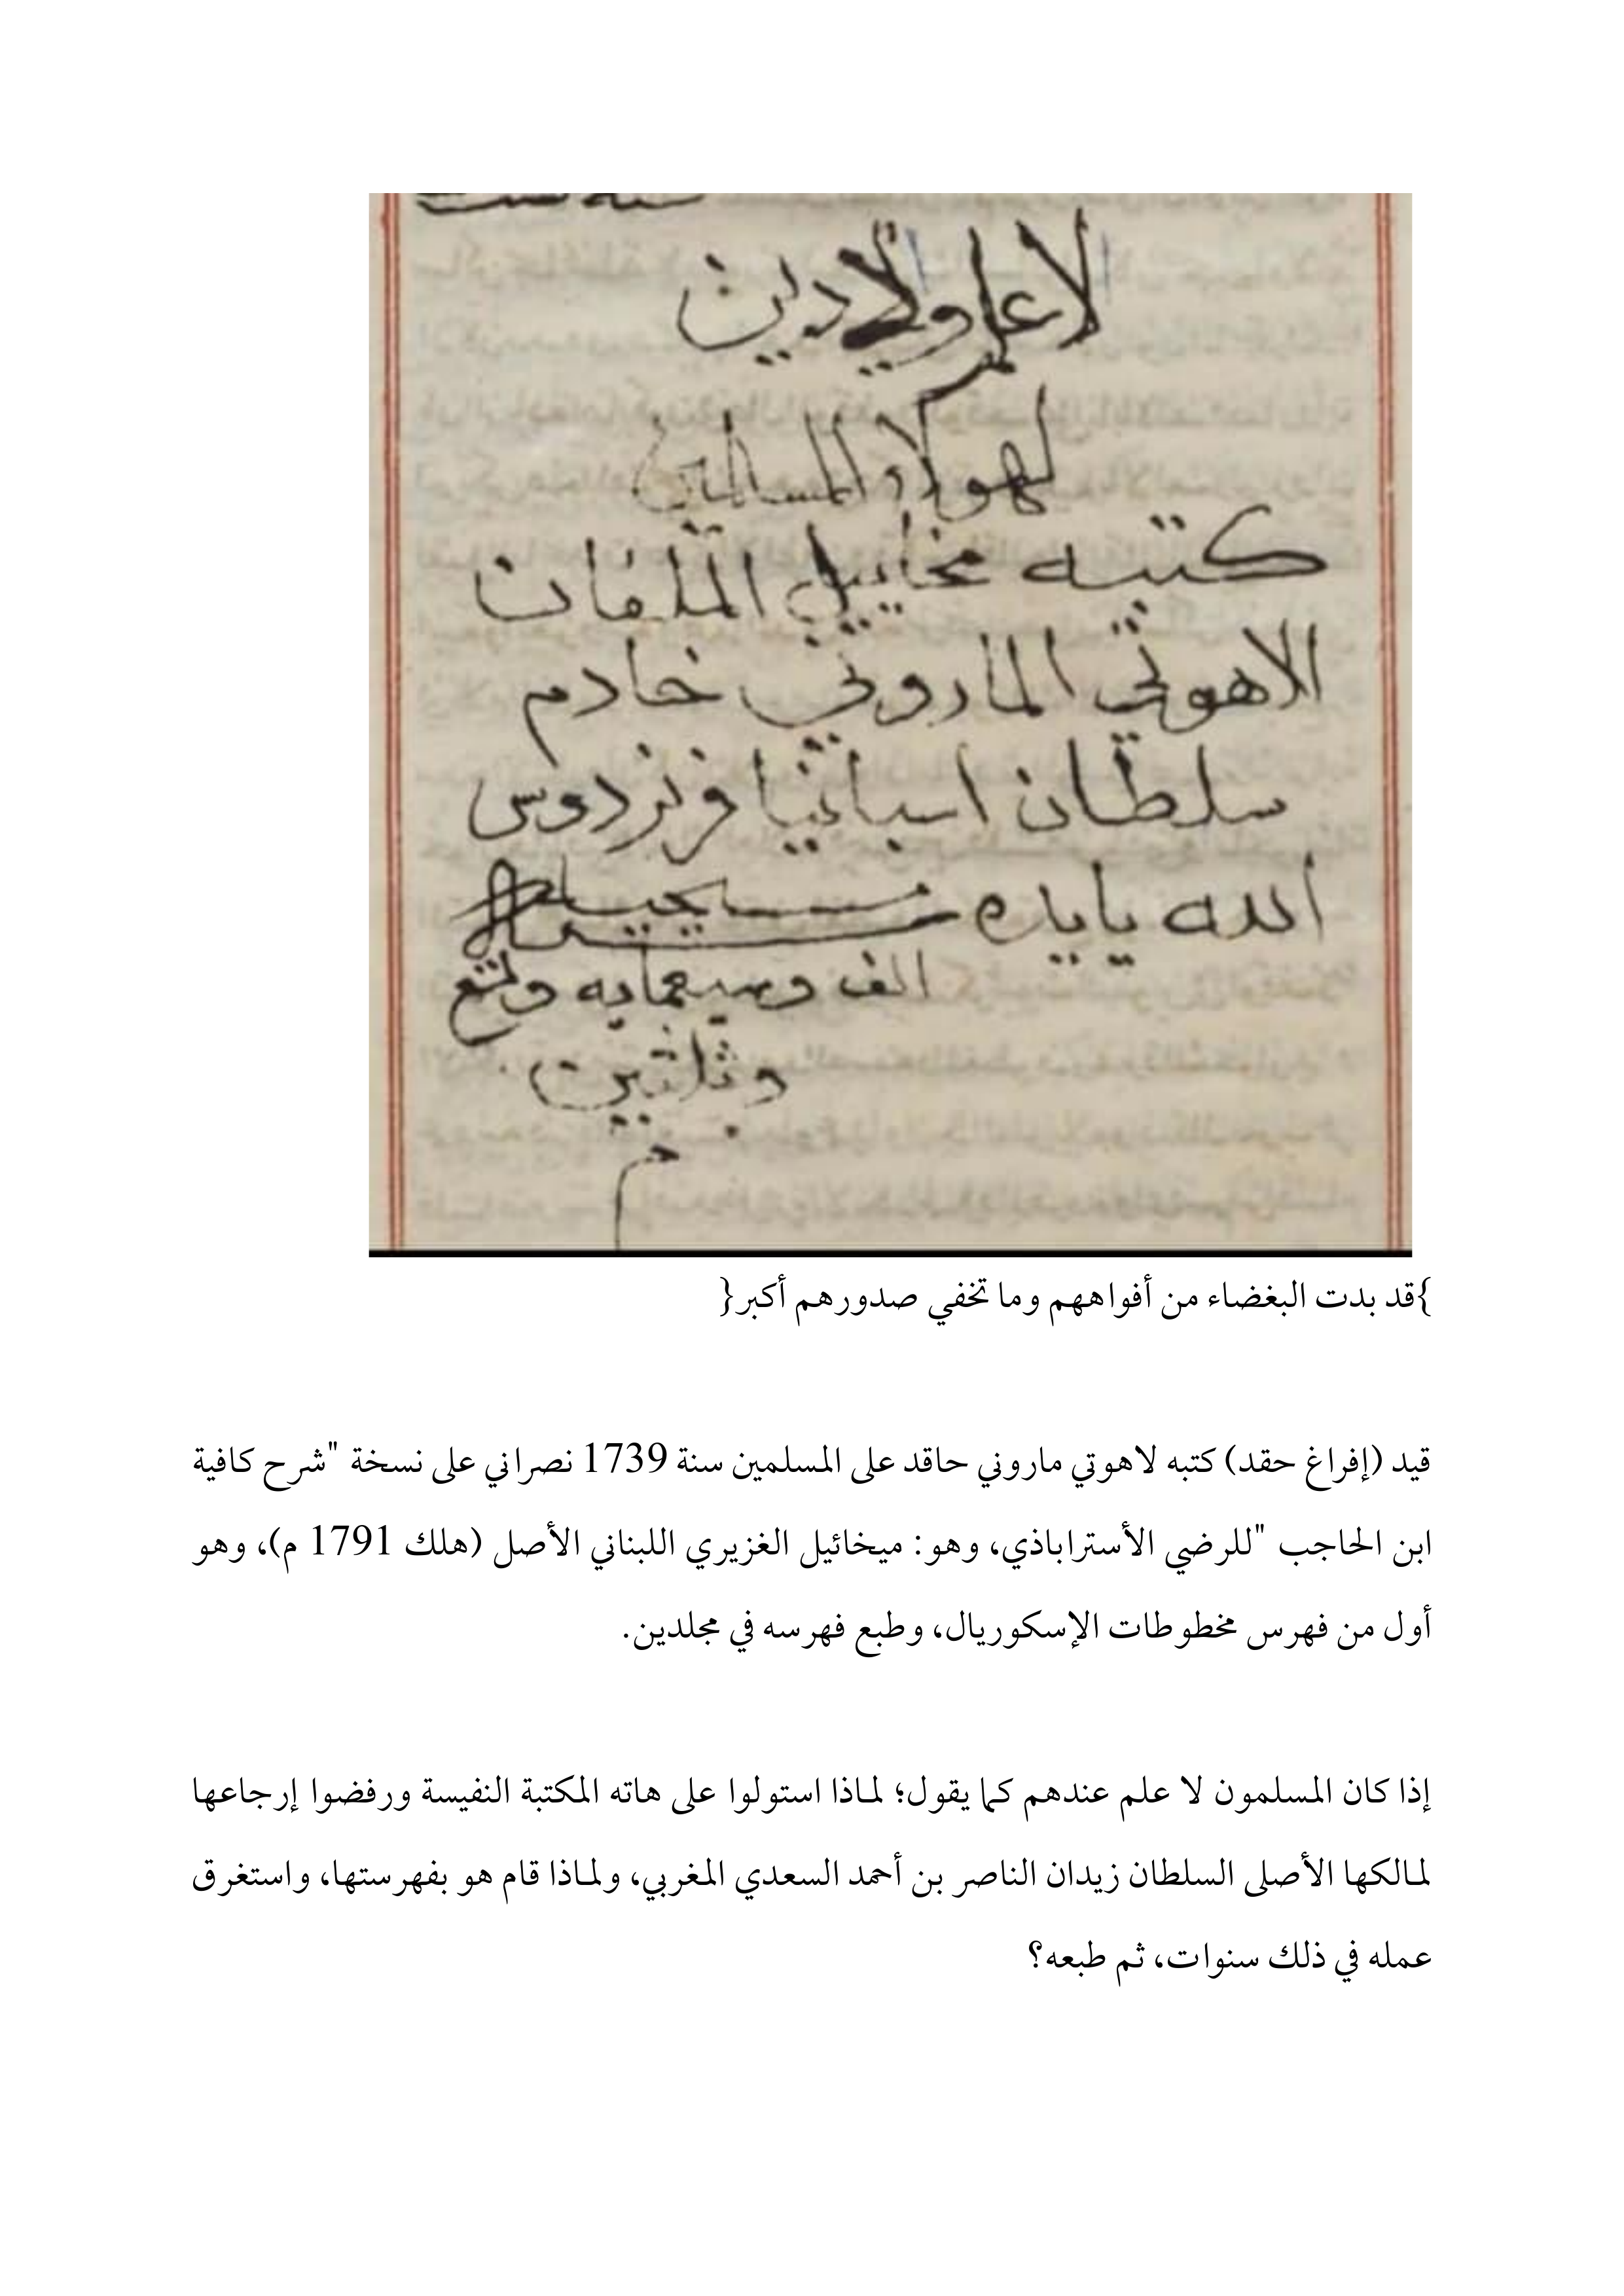 لا علم ولا دين
لهولاء المسلمين
كتبه مخاييل الملفان
الاهوتي الماروني خادم
سلطان اسبانيا فرنردوس
الله يايده مسيحيه
الف وسبعمايه وتسع
وثلثين
م
}قد بدت البغضاء من أفواههم وما تخفي صدورهم أكبر{
قيد (إفراغ حقد) كتبه لاهوتي ماروني حاقد على المسلمين سنة 1739 نصراني على نسخة "شرح كافية
ابن الحاجب "للرضي الأستراباذي، وهو: ميخائيل الغزيري اللبناني الأصل (هلك 1791 م)، وهو
أول من فهرس مخطوطات الإسكوريال، وطبع فهرسه في مجلدين.
إذا كان المسلمون لا علم عندهم كما يقول؛ لماذا استولوا على هاته المكتبة النفيسة ورفضوا إرجاعها
لمالكها الأصلى السلطان زيدان الناصر بن أحمد السعدي المغربي، ولماذا قام هو بفهرستها، واستغرق
عمله في ذلك سنوات، ثم طبعه؟